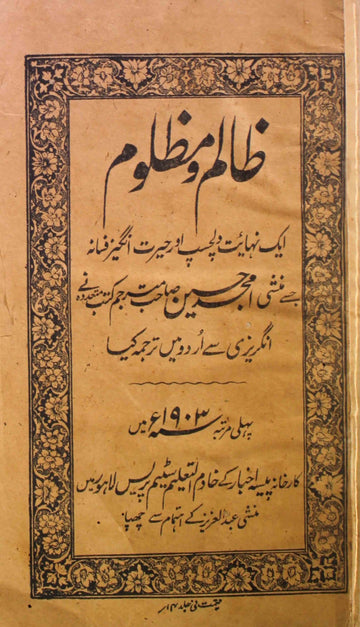 ظالم و مظلوم
ایک نہایت دلچسپ اور حیرت انگیز فسانہ
جسے منشی امجد حسین صاحب مترجم کتب متعددہ نے
انگریزی سے اُردو میں ترجمہ کیا
پہلی مرتبہ سنہ ۱۹۰۳ء میں
کارخانہ پیسہ اخبار کے خادم التعلیم سٹیم پریس لاہور میں
منشی عبدالعزیز کے اہتمام سے چھپا
قیمت فی جلد